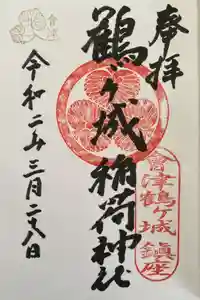 奉拝
鶴ヶ城稲荷神社
會津鶴ヶ城鎮座
令和二年三月二十八日
會津